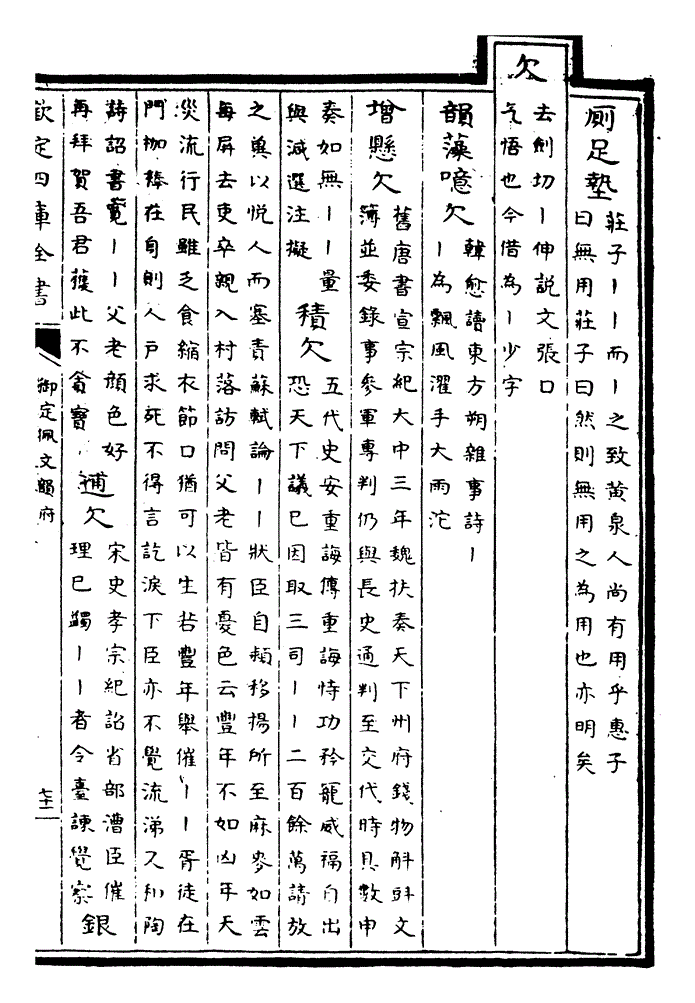 厠足墊
莊子丨丨而丨之致黃泉人尚有用乎惠子
曰無用莊子曰然則無用之為用也亦明矣
欠
去劍切丨伸說文張口
气悟也今借為丨少字
韻藻噫欠
韓愈讀東方朔雜事詩丨
丨為飄風濯手大雨沱
增懸欠
舊唐書宣宗紀大中三年魏扶奏天下州府錢物斛㪷文
簿並委錄事參軍專判仍與長史通判至交代時具數申
奏如無丨丨量
與減選注擬
積欠
五代史安重誨傳重誨恃功矜寵威福自出
恐天下議已因取三司丨丨二百餘萬請放
之兾以悅人而塞責蘇軾論丨丨狀臣自頴移揚所至麻麥如雲
每屏去吏卒親入村落訪問父老皆有憂色云豐年不如凶年天
災流行民雖乏食縮衣節口猶可以生若豐年舉催丨丨胥徒在
門枷棒在身則人戶求死不得言訖淚下臣亦不覺流涕又和陶
詩詔書寛丨丨父老顏色好
再拜賀吾君獲此不貪寶
逋欠
宋史孝宗紀詔省部漕臣催
理已蠲丨丨者令臺諫覺察
銀
欽定四庫全書
御定佩文韻府